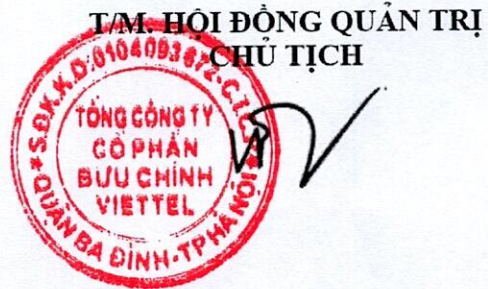 T/M. HỘI ĐỒNG QUẢN TRỊ
CHỦ TỊCH
S.Đ.K.K.D:0104093672-C.T.C.P
TỔNG CÔNG TY
CỔ PHẦN
BƯU CHÍNH
VIETTEL
QUẬN BA ĐÌNH-TP HÀ NỘI